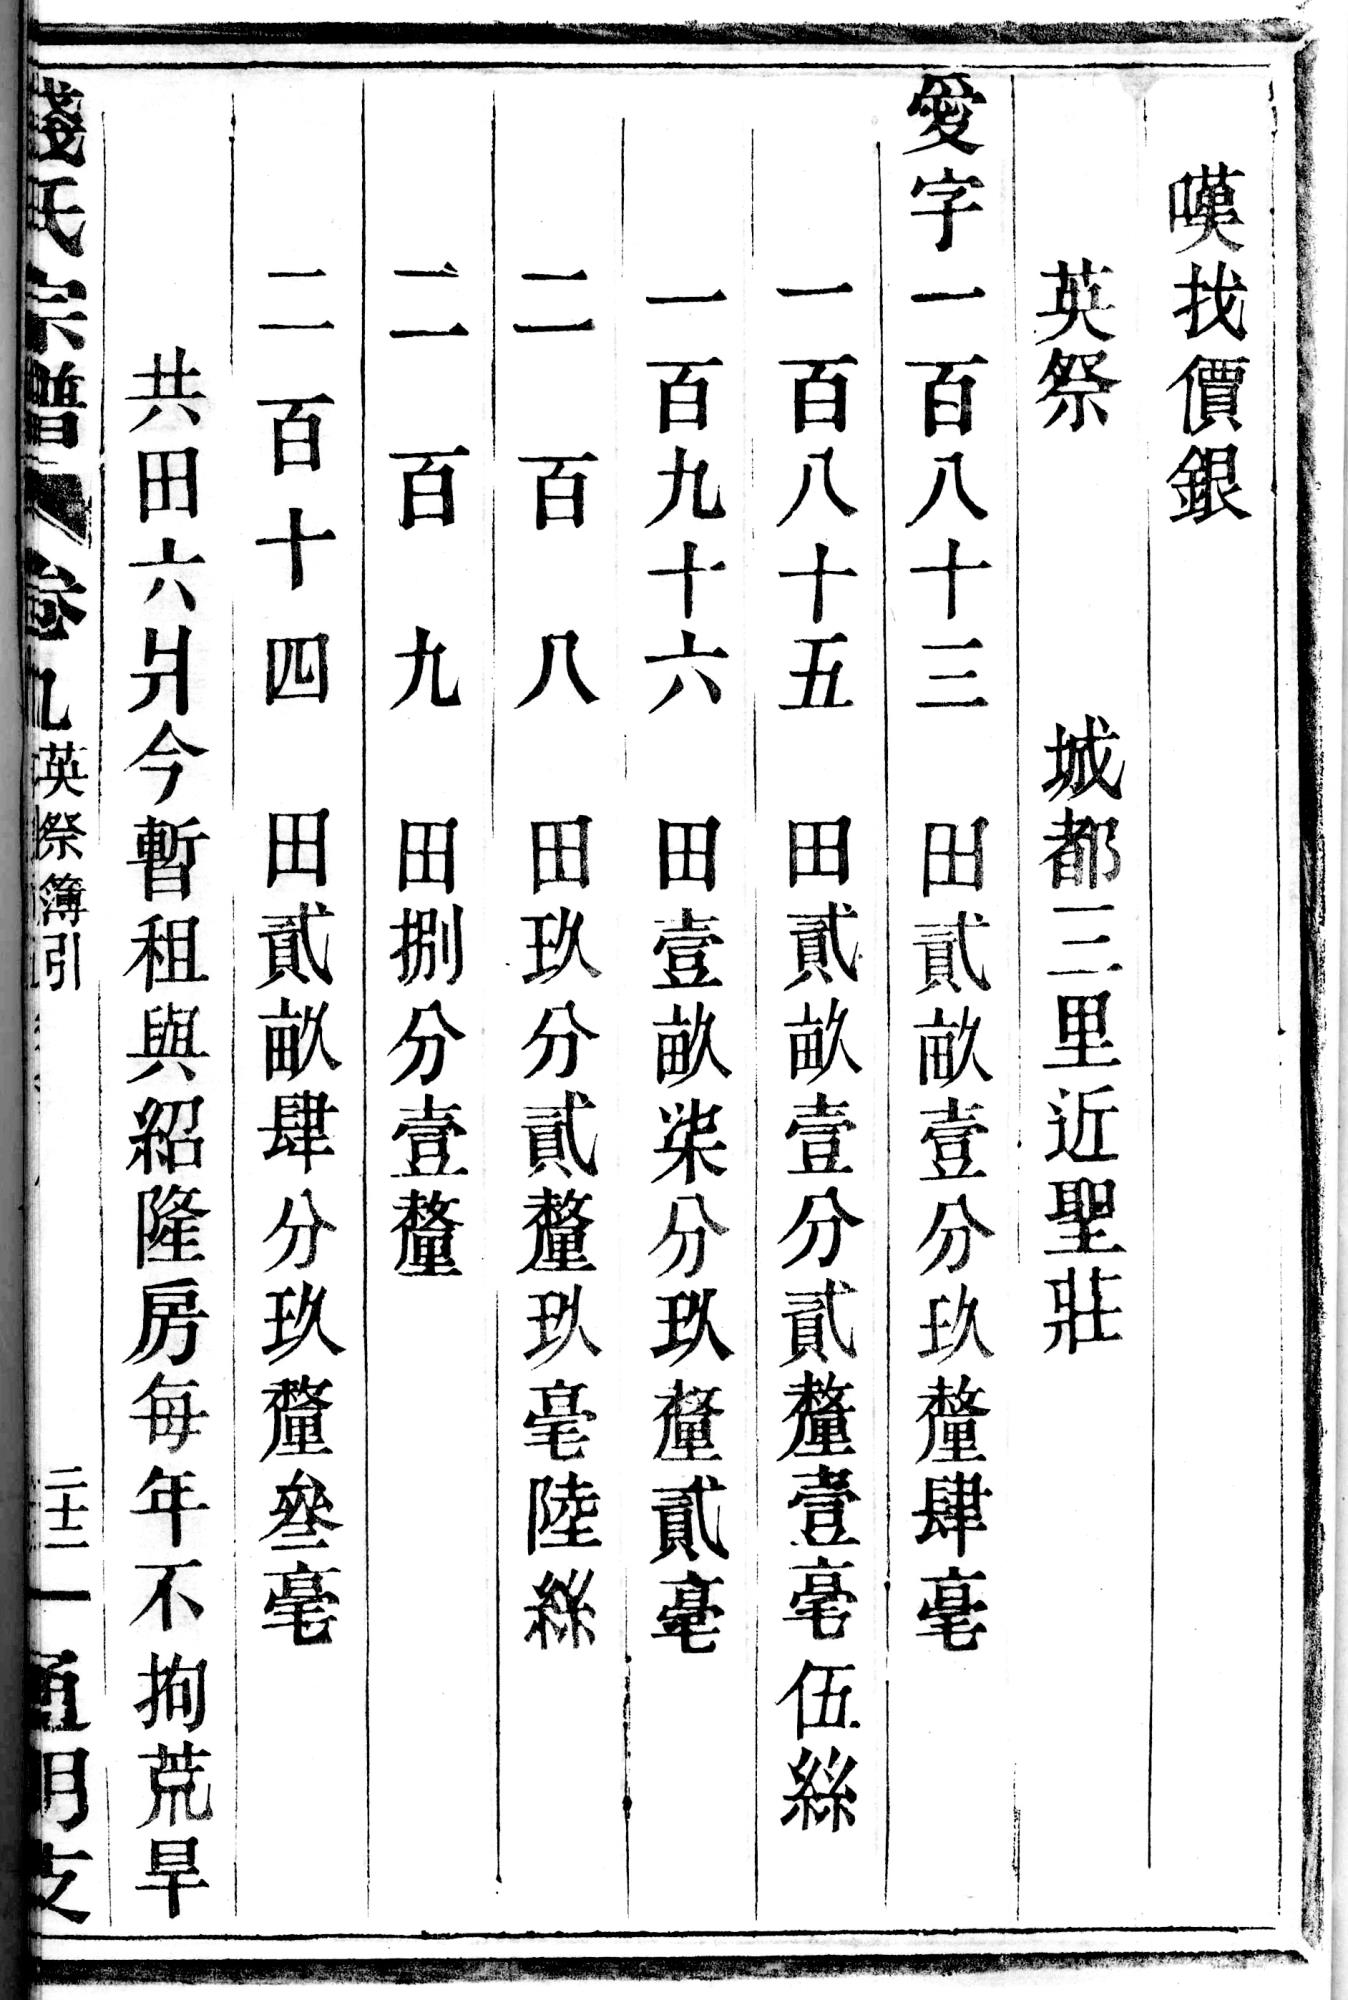 嘆找價銀
英祭 城都三里近聖莊
愛字一百八十三 田貳畝壹分玖釐肆毫
一百八十五 田貳畝壹分貳釐壹毫伍絲
一百九十六 田壹畝柒分玖釐貳毫
二百八 田玖分貳釐玖毫陸絲
二百九 田捌分壹釐
二百十四 田貳畝肆分玖釐叄毫
共田六爿今暫租與紹隆房每年不拘荒旱
錢氏宗譜 卷九 英祭簿引 二十二 通明支